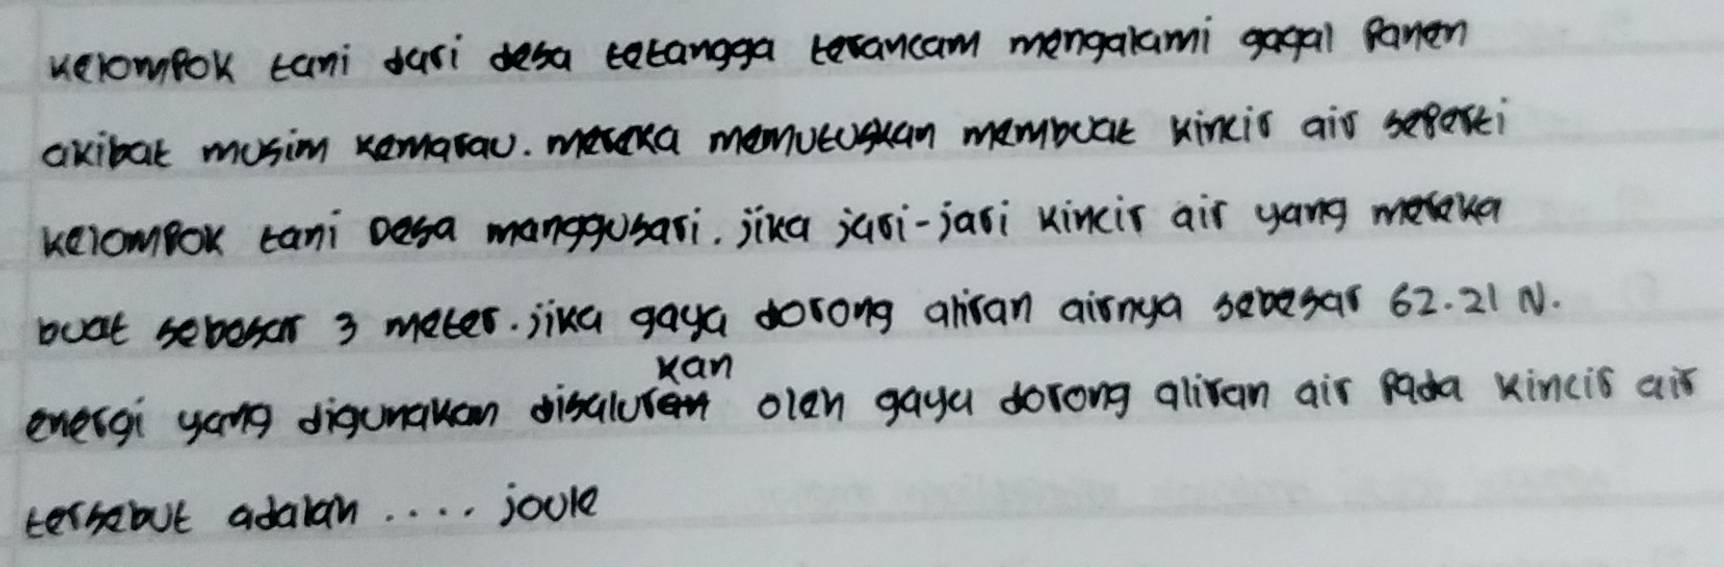 kelompok tani dari desa tetangga terancam mengalami gagal panen
akibat musim kemarau. mereka memutuskan membuat kincir air seperti
kelompok tani Desa manggusari. jika jari-jari kincir air yang mereka
buat sebesar 3 meter. jika gaya dorong aliran airnya sebesar 62.21 N.
kan
energi yang digunakan disaluran oleh gaya dorong aliran air pada kincir air
tersebut adalah .... joule